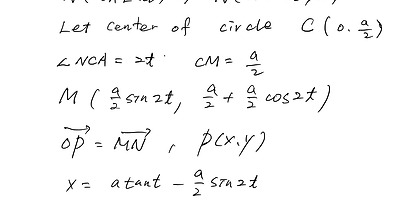 Let center of circle C(0.a/2)
∠NCA = 2t CM = a/2
M(a/2 sin2t, a/2 + a/2 cos2t)
OP→ = MN→, P(x,y)
x = atant - a/2 sin2t